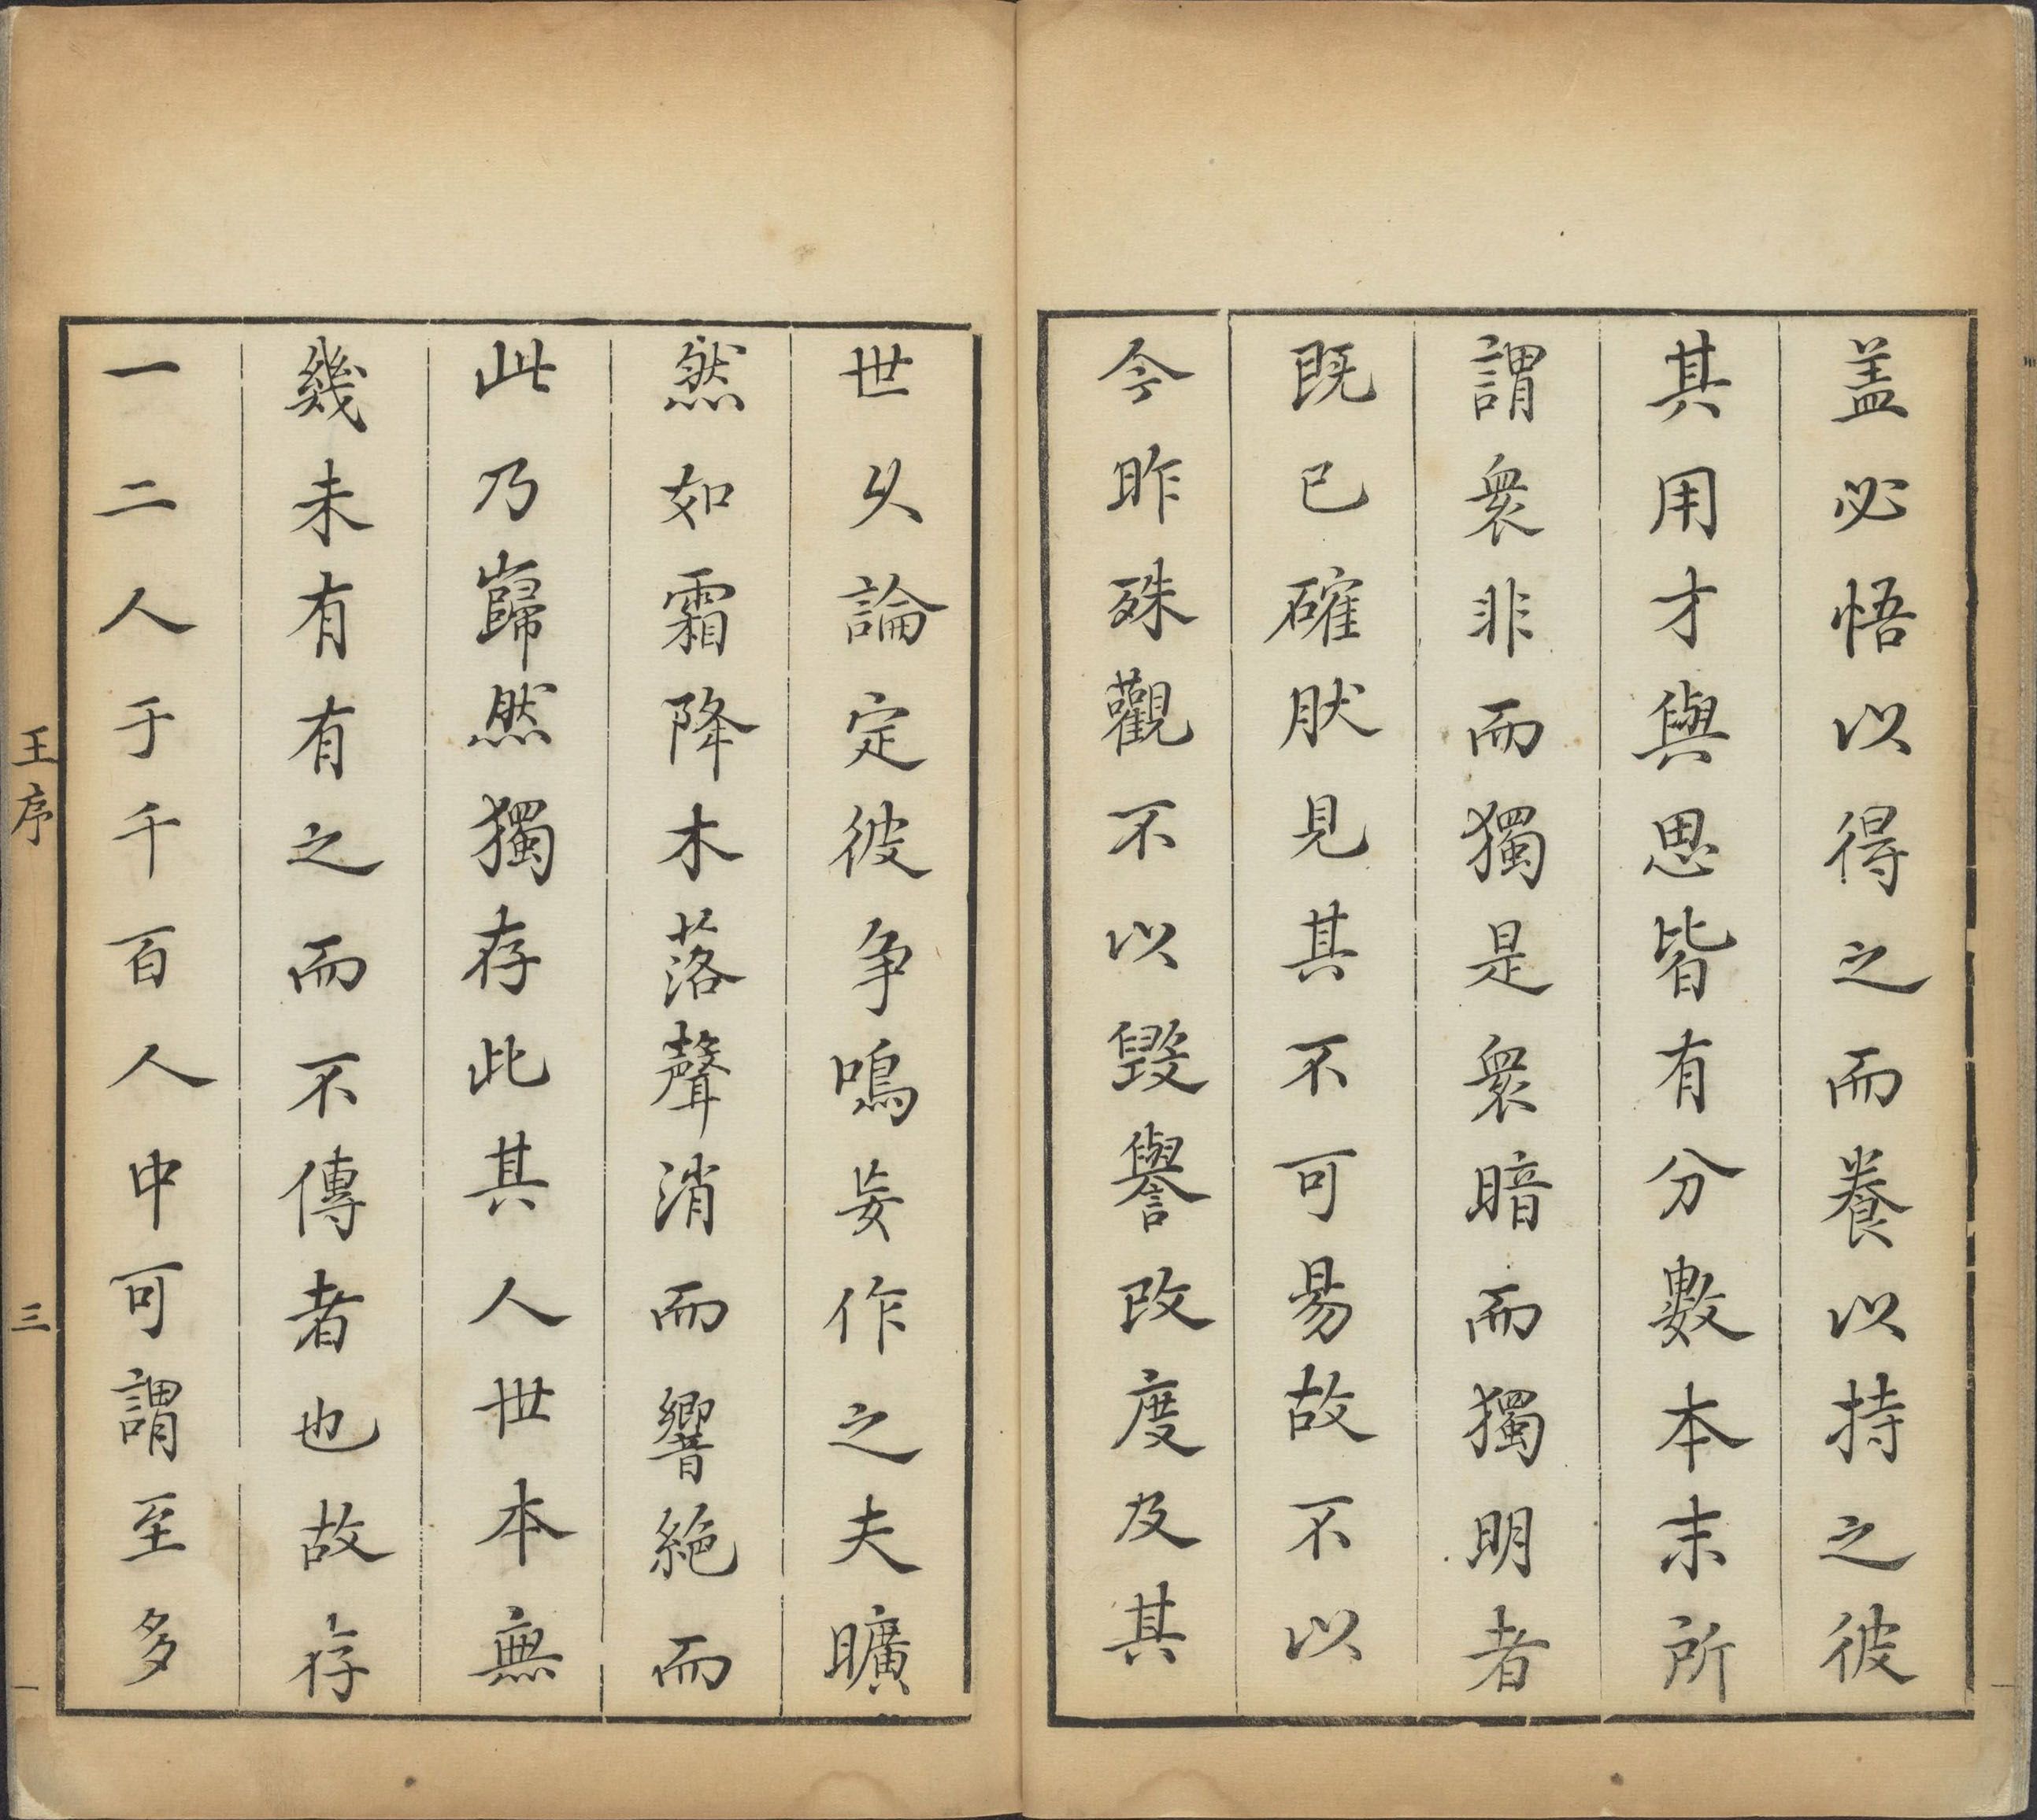 盖必悟以得之而養以持之彼
其用才與思皆有分數本末所
謂衆非而獨是衆暗而獨明者
既已確肰見其不可易故不以
今昨殊觀不以毀譽改度及其
世乆論定彼争鳴妄作之夫曠
然如霜降木落聲消而響絶而
此乃巋然獨存此其人世本無
幾未有有之而不傳者也故存
一二人于千百人中可謂至多
王序
三